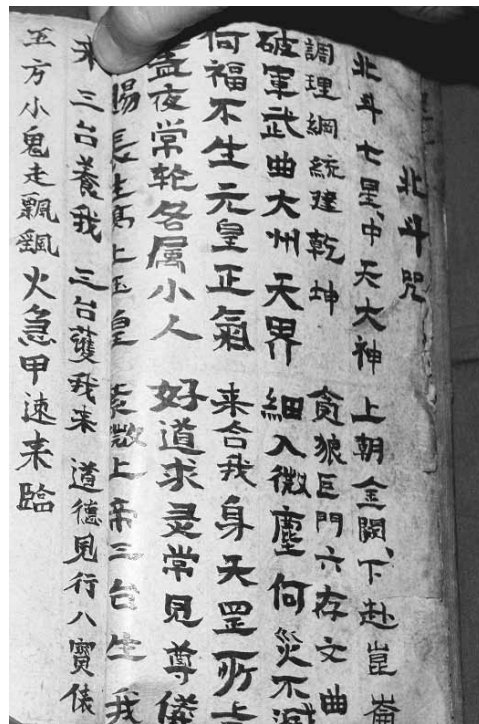 北斗咒
北斗七星、中天大神 上朝金闕、下赴崑崙
調理綱統建乾坤 貪狼巨門六存文曲
破軍武曲大州天界 細入微塵何災不滅
何福不生元皇正氣 来合我身天罡所
夜常轮各属小人 好道求灵常見尊儀
賜長生髙上玉皇 紫微上帝三台生我
来 三台養我 三台護我来 道德見行八寳俵
五方小鬼走飄飄 火急甲速来臨